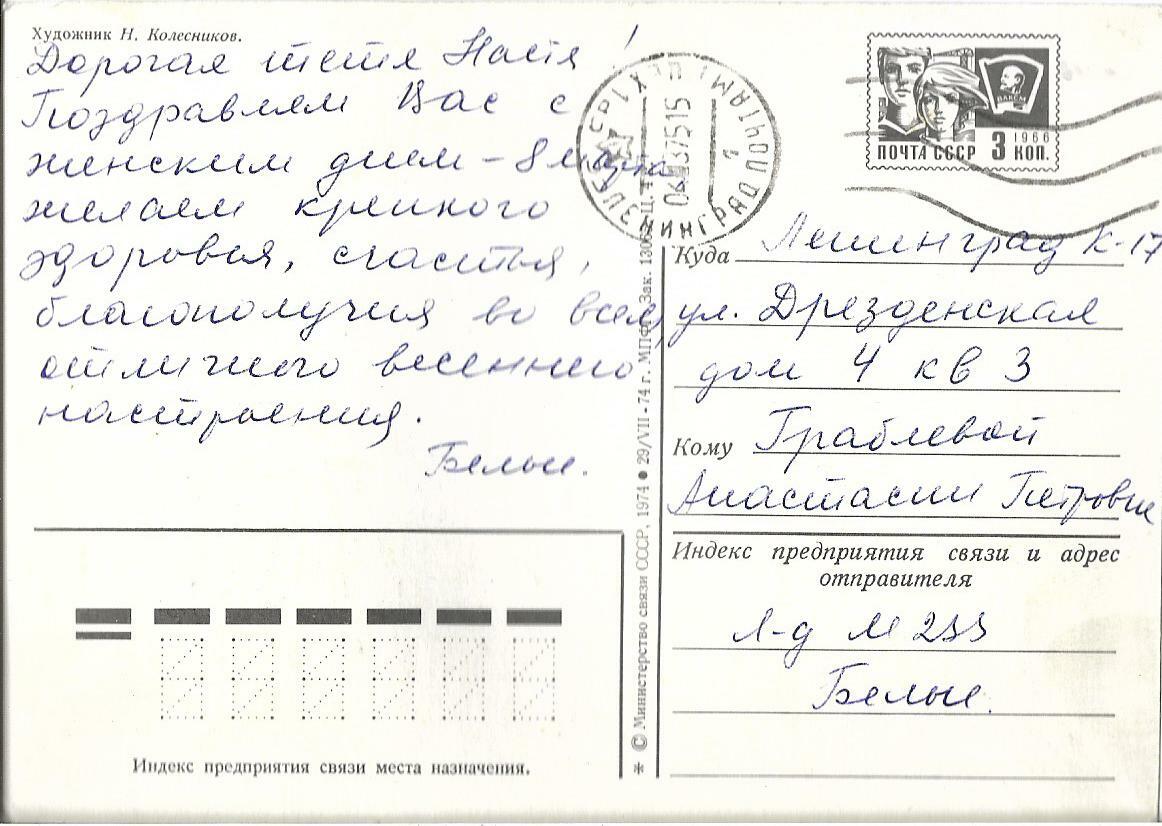 Художник Н. Колесников.
Дорогая тетя Настя!
Поздравляем Вас с
женским днем - 8 марта
желаем крепкого
здоровья, счастья,
благополучия во всем,
отличного весеннего
настроения.
Белые.
Индекс предприятия связи места назначения.
© Министерство связи СССР, 1974 ● 29/VII-74 г. МПФГ. Зак.
ЛЕНИНГРАД ПОЧТАМТ
1
ПОЧТА СССР 3 1966 КОП.
ВЛКСМ
Куда Ленинград К-17
ул. Дрезденская
дом 4 кв 3
Кому Граблевой
Анастасии Петровне
Индекс предприятия связи и адрес
отправителя
Л-д М 233
Белые.